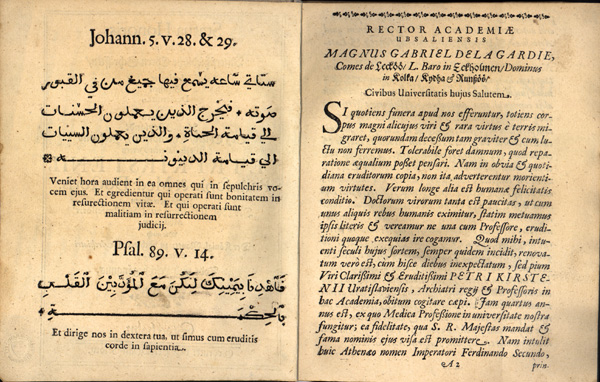 Johann. 5. v. 28. & 29.
ستاتي ساعه يسمع فيها جميع من في القبور
صوته * فيخرج الذين يعملون الحسنات
الي قيامة الحياة * والذين يعملون السيات
الي قيامة الدينونه
Veniet hora audient in ea omnes qui in sepulchris vo-
cem ejus. Et egredientur qui operati sunt bonitatem in
resurectionem vitæ. Et qui operati sunt
malitiam in resurrectionem
judicij.
Psal. 89. v. 14.
مع المؤدبين القلب
بالحكمة
Et dirige nos in dextera tua, ut simus cum eruditis
corde in sapientia.
RECTOR ACADEMIÆ
UBSALIENSIS
MAGNUS GABRIEL DE LA GARDIE,
Comes de Lecköö/ L. Baro in Eckholmen/ Dominus
in Kolka/ Kydha & Runsöö/
Civibus Universitatis hujus Salutem.
SI quotiens funera apud nos efferuntur, totiens cor-
pus magni alicujus viri & rara virtus è terris mi-
graret, quorundam decessum tam graviter & cum lu-
ctu non ferremus. Tolerabile foret damnum, quod repa-
ratione æqualium posset pensari. Nam in obvia & quoti-
diana eruditorum copia, non ita adverterentur morienti-
um virtutes. Verum longe alia est humanæ felicitatis
conditio. Doctorum virorum tanta est paucitas, ut cum
unus aliquis rebus humanis eximitur, statim metuamus
ipsis literis & vereamur ne una cum Professore, erudi-
tioni quoque exequias ire cogamur. Quod mihi, intu-
enti seculi hujus sortem, semper quidem incidit, renova-
tum verò est, cum hisce diebus inexpectatum, sed pium
Viri Clarissimi & Eruditissimi PETRI KIRSTE-
NII Uratislaviensis, Archiatri regij & Professoris in
hac Academia, obitum cogitare cæpi. Jam quartus an-
nus est, ex quo Medica Professione in universitate nostra
fungitur; ea fidelitate, qua S. R. Majestas mandat &
fama nominis ejus visa est promittere. Nam intulit
huic Athenæo nomen Imperatori Ferdinando Secundo,
A2 prin-